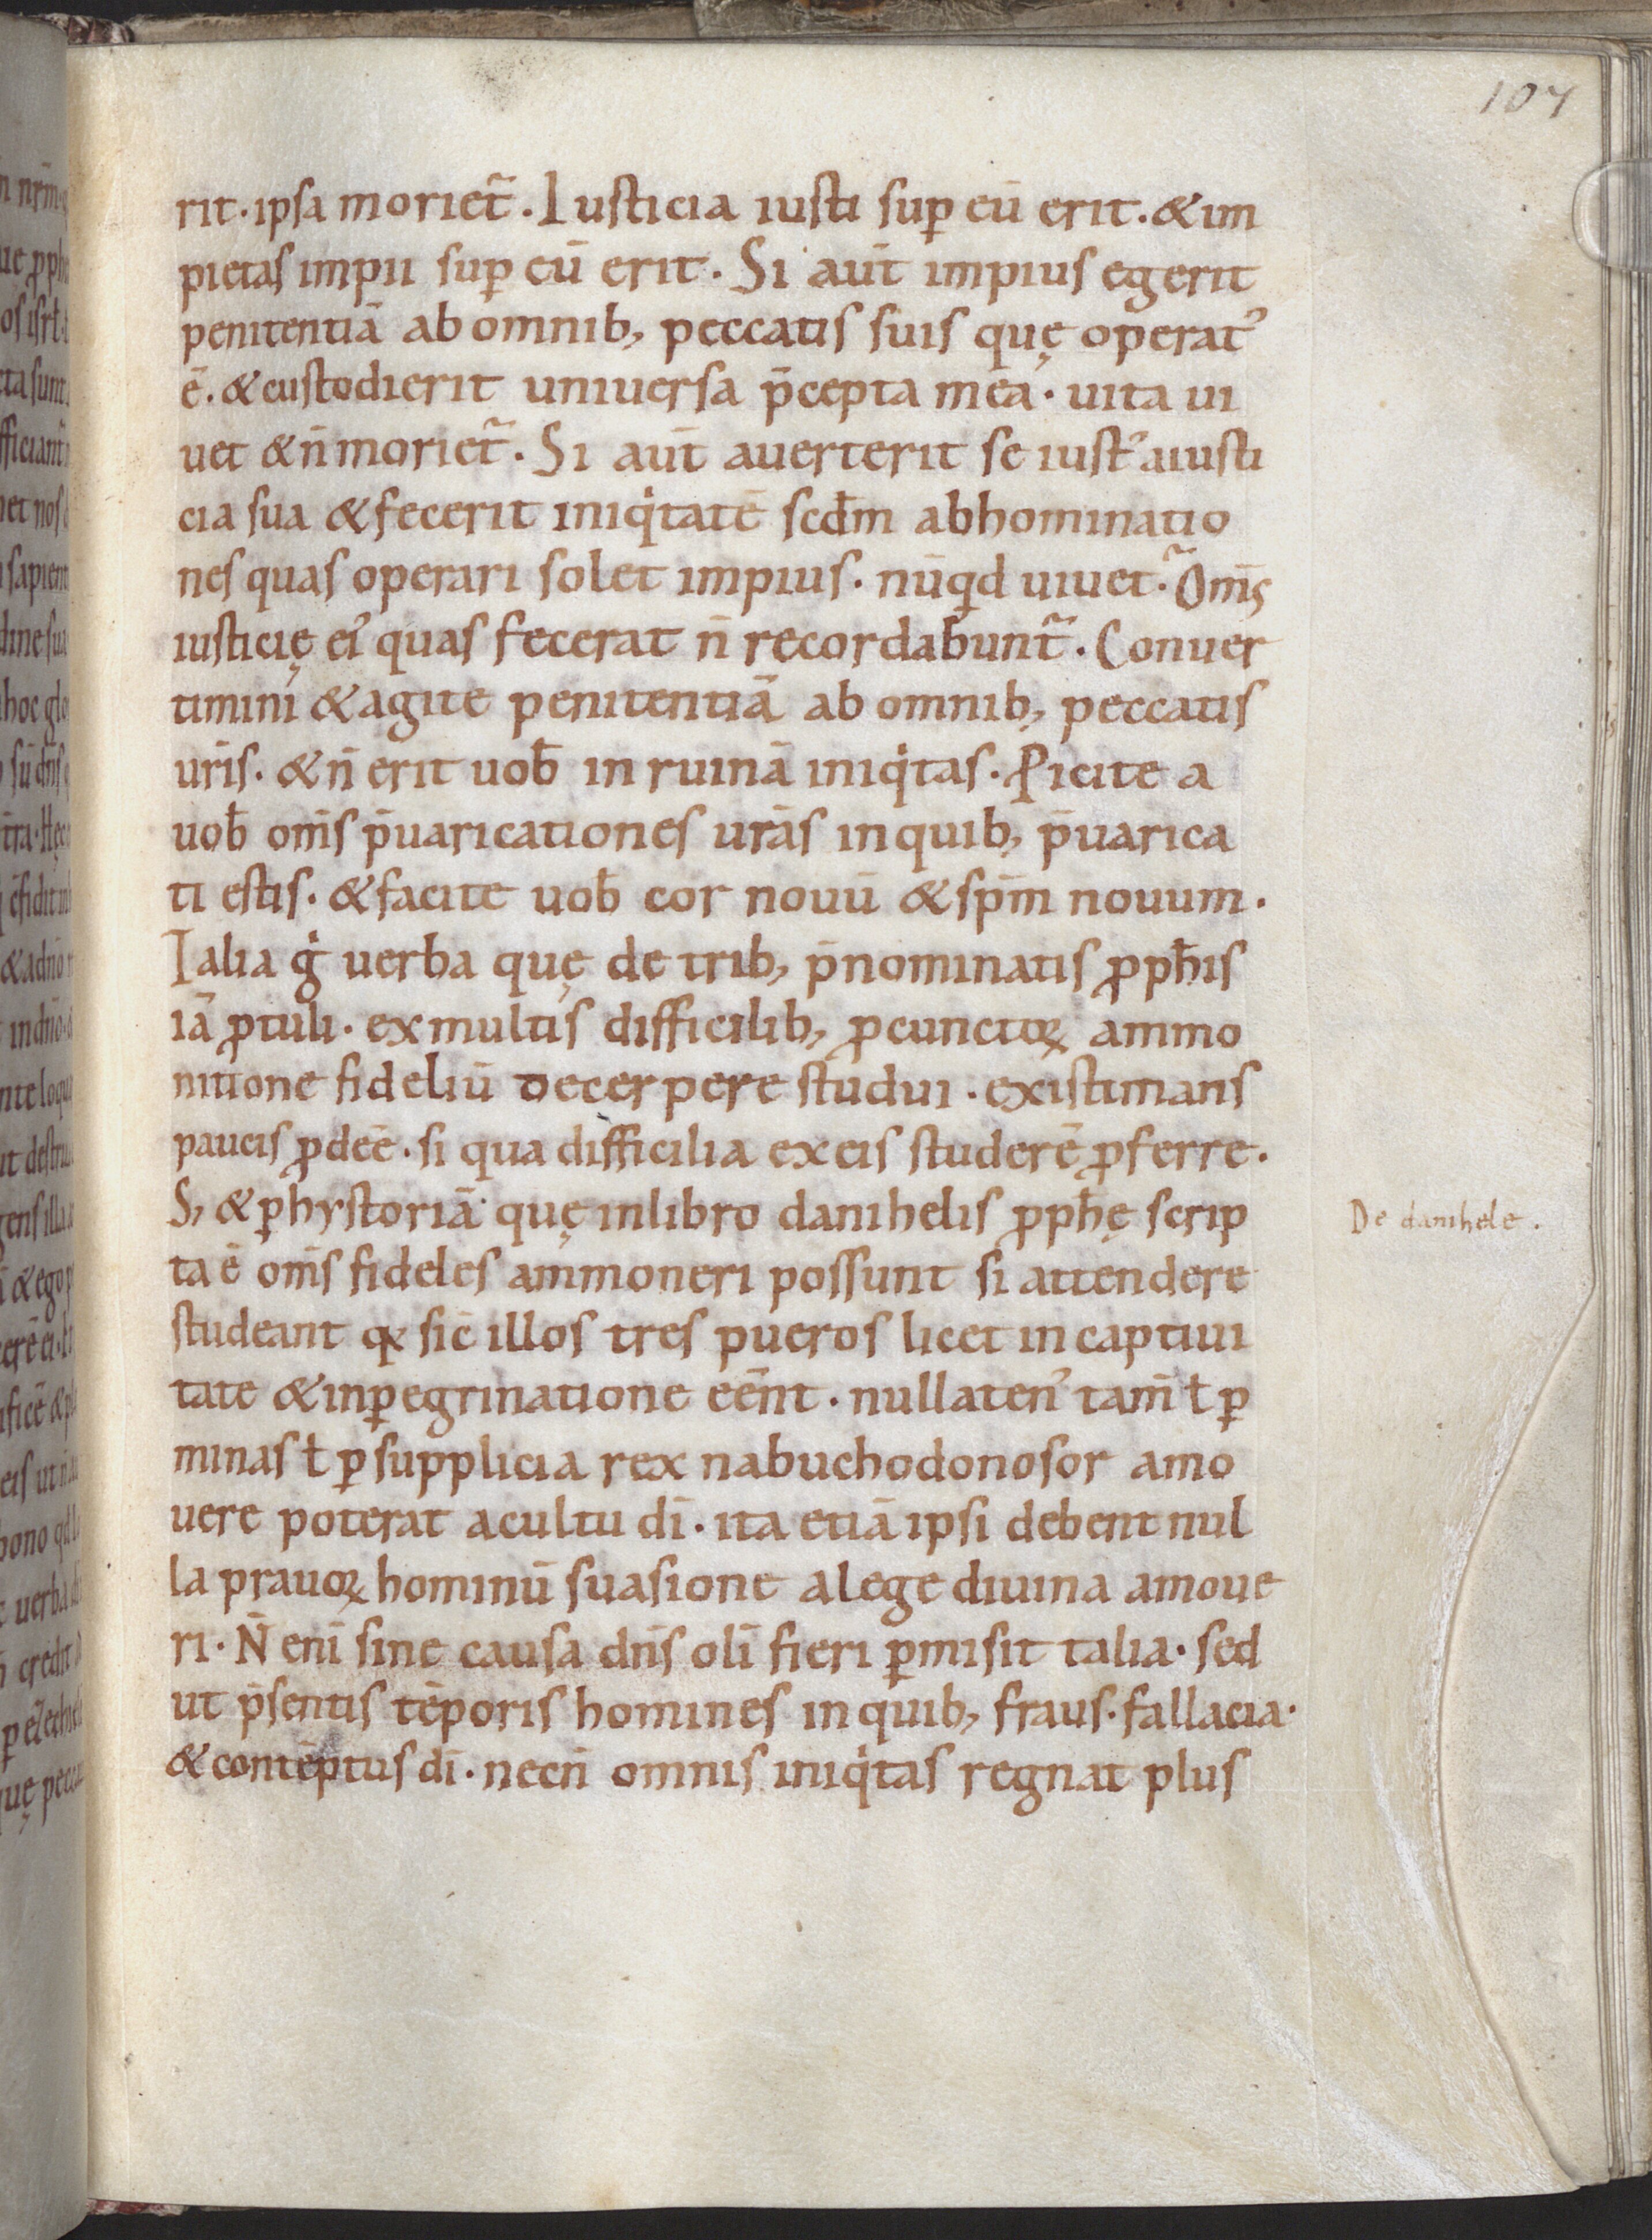 107
rit· ipsa moriet᷑. Iusticia iusti suꝑ eū erit. & im
pietas impii suꝑ eū erit. Si aut̄ impius egerit
penitentiā ab omnib; peccatis suis quę operatꝰ
ē. & custodierit uniuersa p̄cepta mea· uita ui
uet & n̄ moriet᷑. Si aut̄ auerterit se iustꝰ a iusti
cia sua & fecerit iniqͥtatē scd̄m abhominatio
nes quas operari solet impius· nūqd uiuet? Om̄s
iusticię eiꝰ quas fecerat n̄ recordabunt᷑. Conuer
timini & agite penitentiā ab omnib; peccatis
ur̄is. & n̄ erit uob̄ in ruinā iniqͥtas. Ꝓicite a
uob̄ om̄s p̄uaricationes ur̄as in quib; p̄uarica
ti estis. & facite uob̄ cor nouū & sp̄m nouum.
Talia gͥ uerba quę de trib; p̄nominatis ꝓph̄is
iā ꝓtuli· ex multis difficilib; ꝓ cunctoꝝ ammo
nitione fideliū decerpere studui· existimans
paucis ꝓdeē· si qua difficilia ex eis studerē ꝓferre.
S; & ꝑ hystoriā quę in libro danihelis ꝓph̄ę scrip
ta ē om̄s fideles ammoneri possunt si attendere
studeant qꝫ sic illos tres pueros licet in captiui
tate & in ꝑegrinatione eēnt· nullatenꝰ tam̄ ł ꝑ
minas ł ꝑ supplicia rex nabuchodonosor amo
uere poterat a cultu dī· ita etiā ipsi debent nul
la prauoꝝ hominū suasione a lege diuina amoue
ri· N̄ eni̅ sine causa dn̄s oli̅ fieri ꝑmisit talia· sed
ut p̄sentis tēporis homines in quib; fraus· fallacia·
& contēptus dī· necn̄ omnis iniqͥtas regnat plus
De danihele.